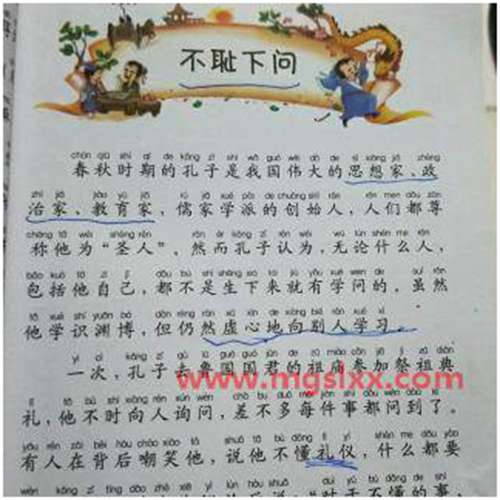 不耻下问
chūn qiū shí qī de kǒng zǐ shì wǒ guó wěi dà de sī xiǎng jiā zhèng
春秋时期的孔子是我国伟大的思想家、政
zhì jiā jiào yù jiā rú jiā xué pài de chuàng shǐ rén rén men dōu zūn
治家、教育家，儒家学派的创始人，人们都尊
chēng tā wéi shèng rén rán ér kǒng zǐ rèn wéi wú lùn shén me rén
称他为“圣人”。然而孔子认为，无论什么人，
bāo kuò tā zì jǐ dōu bú shì shēng xià lái jiù yǒu xué wen de suī rán
包括他自己，都不是生下来就有学问的。虽然
tā xué shí yuān bó dàn réng rán xū xīn de xiàng bié rén xué xí
他学识渊博，但仍然虚心地向别人学习。
yí cì kǒng zǐ qù lǔ guó guó jūn de zǔ miào cān jiā jì zǔ diǎn
一次，孔子去鲁国国君的祖庙参加祭祖典
www.mgslxx.com
lǐ tā bù shí xiàng rén xún wèn chà bu duō měi jiàn shì dōu wèn dào le
礼，他不时向人询问，差不多每件事都问到了。
yǒu rén zài bèi hòu cháo xiào tā shuō tā bù dǒng lǐ yí shén me dōu yào
有人在背后嘲笑他，说他不懂礼仪，什么都要